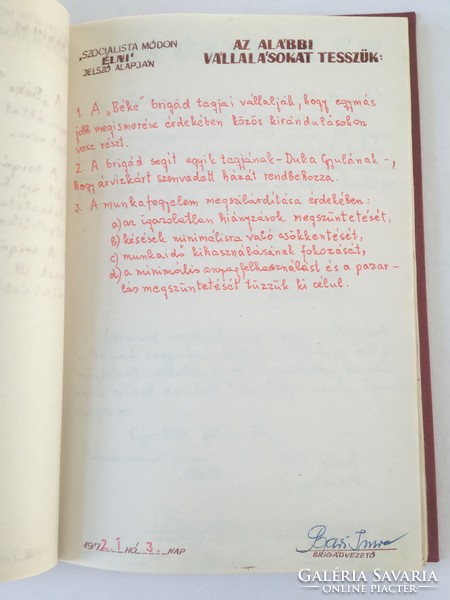 „SZOCIALISTA MÓDON
ÉLNI”
JELSZÓ ALAPJÁN
AZ ALÁBBI
VÁLLALÁSOKAT TESSZÜK:
1. A „Béke” brigád tagjai vállalják, hogy egymás
jobb megismerése érdekében közös kirándulásokon
vesz részt.
2. A brigád segít egyik tagjának - Duka Gyulának -,
hogy árvízkárt szenvedett házát rendbehozza.
3. A munkafegyelem megszilárdítása érdekében:
a) az igazolatlan hiányzások megszüntetését,
b) késések minimálisra való csökkentését,
c) munkaidő kihasználásának fokozását,
d) a minimális anyagfelhasználást és a pazar-
lás megszüntetését tűzzük ki célul.
1972. I HÓ 3. NAP
Imre
BRIGÁDVEZETŐ
GALÉRIA SAVARIA
ONLINE PIACTÉR